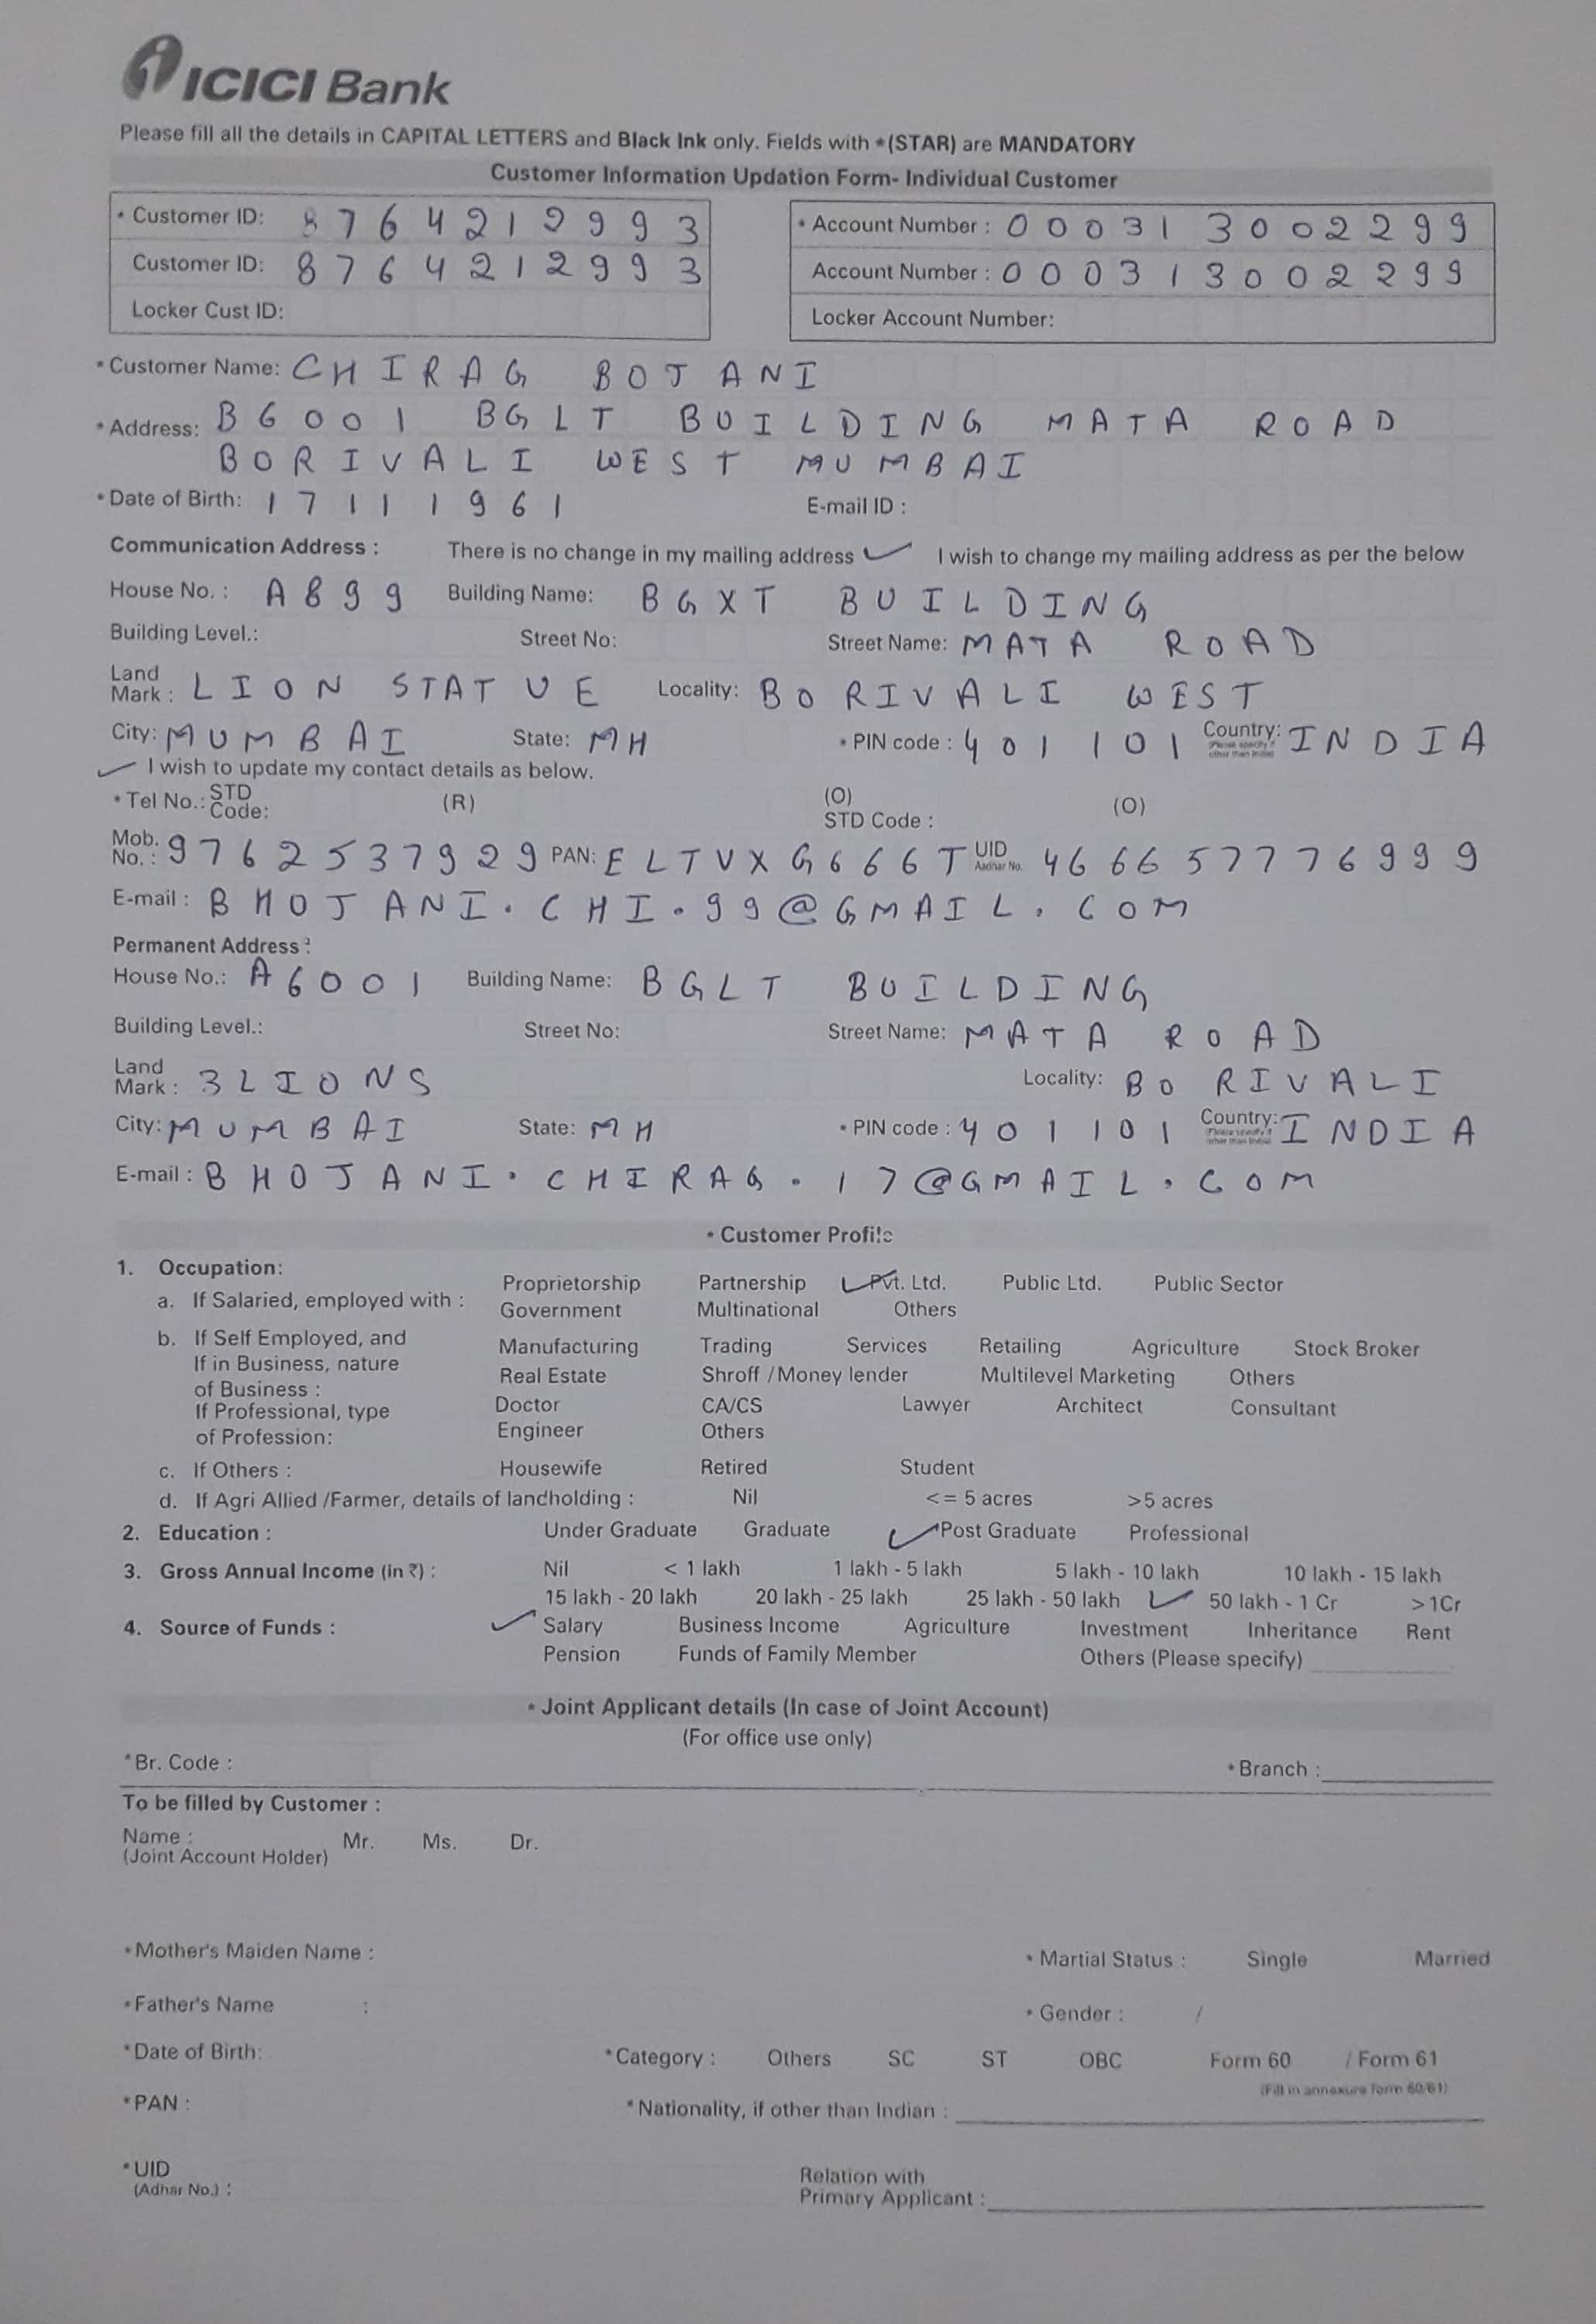 ICICI Bank
Please fill all the details in CAPITAL LETTERS and Black Ink only. Fields with *(STAR) are MANDATORY
Customer Information Updation Form- Individual Customer
* Customer ID: 8764212993 * Account Number : 000313002299
Customer ID: 8764212993 Account Number : 000313002299
Locker Cust ID: Locker Account Number:
* Customer Name: CHIRAG BOJANI
* Address: B6001 BGLT BUILDING MATA ROAD
BORIVALI WEST MUMBAI
* Date of Birth: 17111961 E-mail ID :
Communication Address : There is no change in my mailing address ✓ I wish to change my mailing address as per the below
House No. : A899 Building Name: BGXT BUILDING
Building Level.: Street No: Street Name: MATA ROAD
Land Mark : LION STATUE Locality: BORIVALI WEST
City: MUMBAI State: MH * PIN code : 401101 Country: (Please specify if other than India) INDIA
✓ I wish to update my contact details as below.
* Tel No.: STD Code: (R) (O) STD Code : (O)
Mob. No. : 9762537929 PAN: ELTVXG666T UID Aadhar No. 466657776999
E-mail : BHOJANI.CHI.99@GMAIL.COM
Permanent Address :
House No.: A6001 Building Name: BGLT BUILDING
Building Level.: Street No: Street Name: MATA ROAD
Land Mark : 3LIONS Locality: BORIVALI
City: MUMBAI State: MH * PIN code : 401101 Country: (Please specify if other than India) INDIA
E-mail : BHOJANI.CHIRAG.17@GMAIL.COM
* Customer Profile
1. Occupation:
a. If Salaried, employed with : Proprietorship Partnership ✓ Pvt. Ltd. Public Ltd. Public Sector
Government Multinational Others
b. If Self Employed, and Manufacturing Trading Services Retailing Agriculture Stock Broker
If in Business, nature Real Estate Shroff /Money lender Multilevel Marketing Others
of Business :
If Professional, type Doctor CA/CS Lawyer Architect Consultant
of Profession: Engineer Others
c. If Others : Housewife Retired Student
d. If Agri Allied /Farmer, details of landholding : Nil <= 5 acres >5 acres
2. Education : Under Graduate Graduate ✓ Post Graduate Professional
3. Gross Annual Income (in ₹) : Nil < 1 lakh 1 lakh - 5 lakh 5 lakh - 10 lakh 10 lakh - 15 lakh
15 lakh - 20 lakh 20 lakh - 25 lakh 25 lakh - 50 lakh ✓ 50 lakh - 1 Cr >1Cr
4. Source of Funds : ✓ Salary Business Income Agriculture Investment Inheritance Rent
Pension Funds of Family Member Others (Please specify)
* Joint Applicant details (In case of Joint Account)
(For office use only)
*Br. Code : * Branch :
To be filled by Customer :
Name : Mr. Ms. Dr.
(Joint Account Holder)
* Mother's Maiden Name : * Martial Status : Single Married
* Father's Name : * Gender : /
* Date of Birth: * Category : Others SC ST OBC Form 60 / Form 61
(Fill in annexure form 60/61)
* PAN : * Nationality, if other than Indian :
* UID Relation with
(Adhar No.) : Primary Applicant :